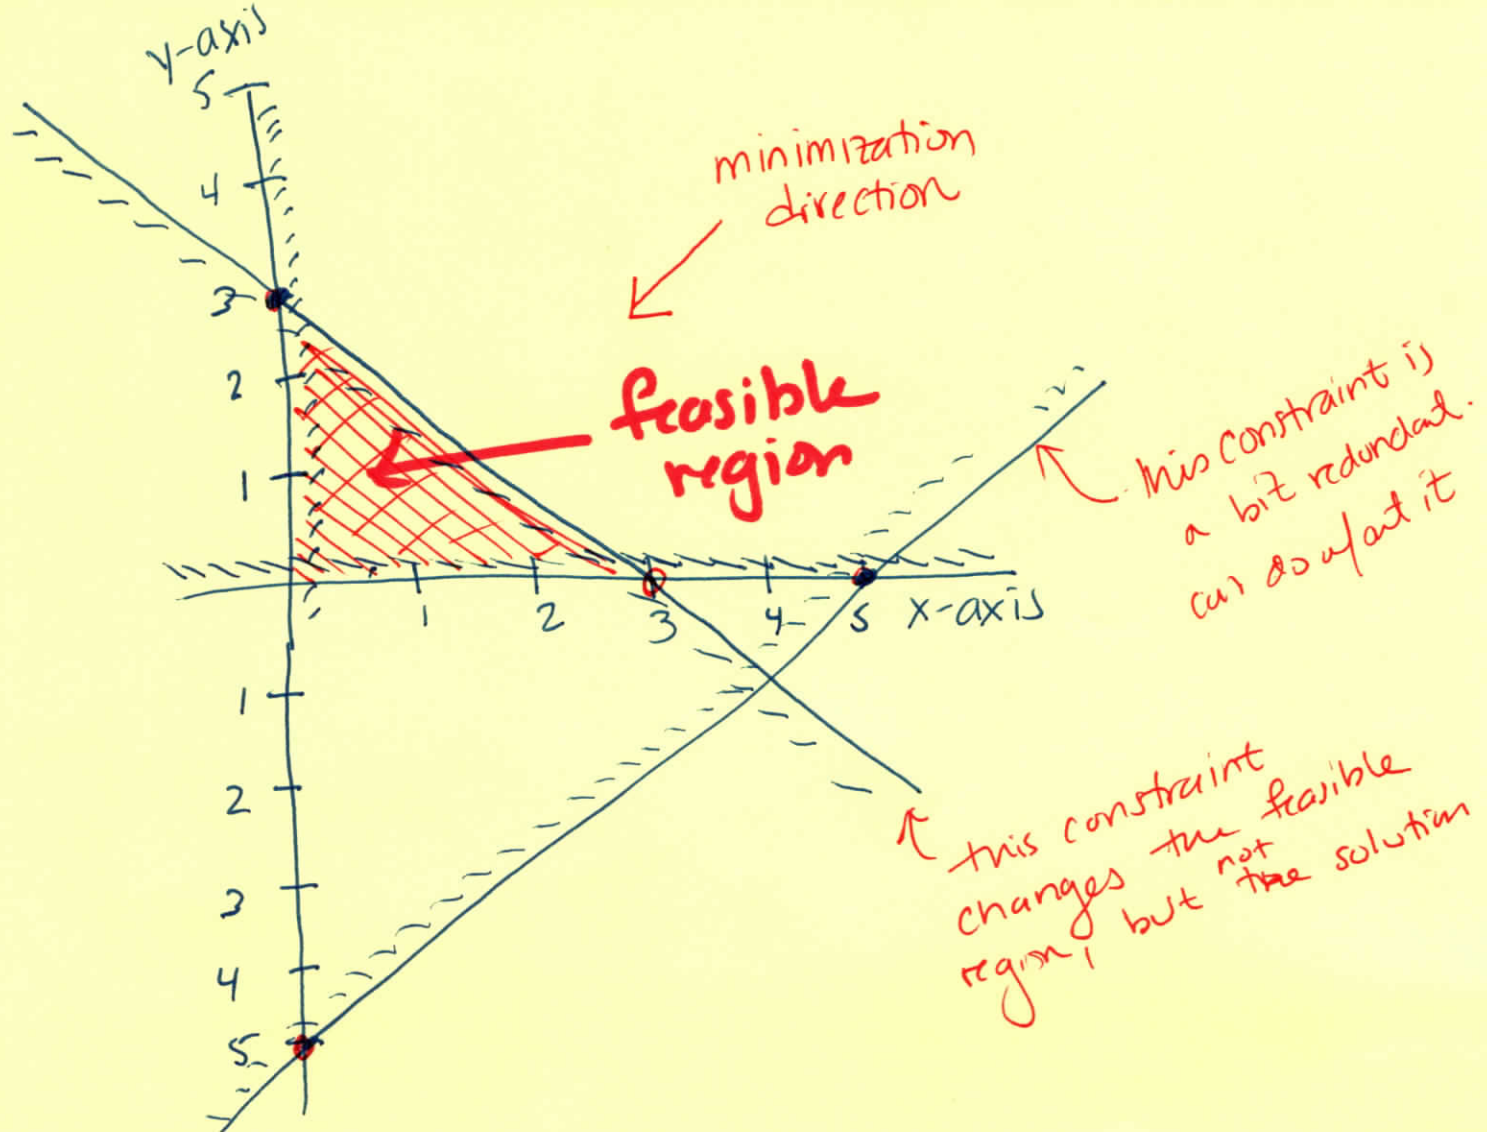 y-axis
5
4
3
2
1
1
2
3
4
5
1
2
3
4
5
x-axis
minimization
direction
feasible
region
this constraint is
a bit redundant.
can do w/out it
this constraint
changes the feasible
region, but not the solution